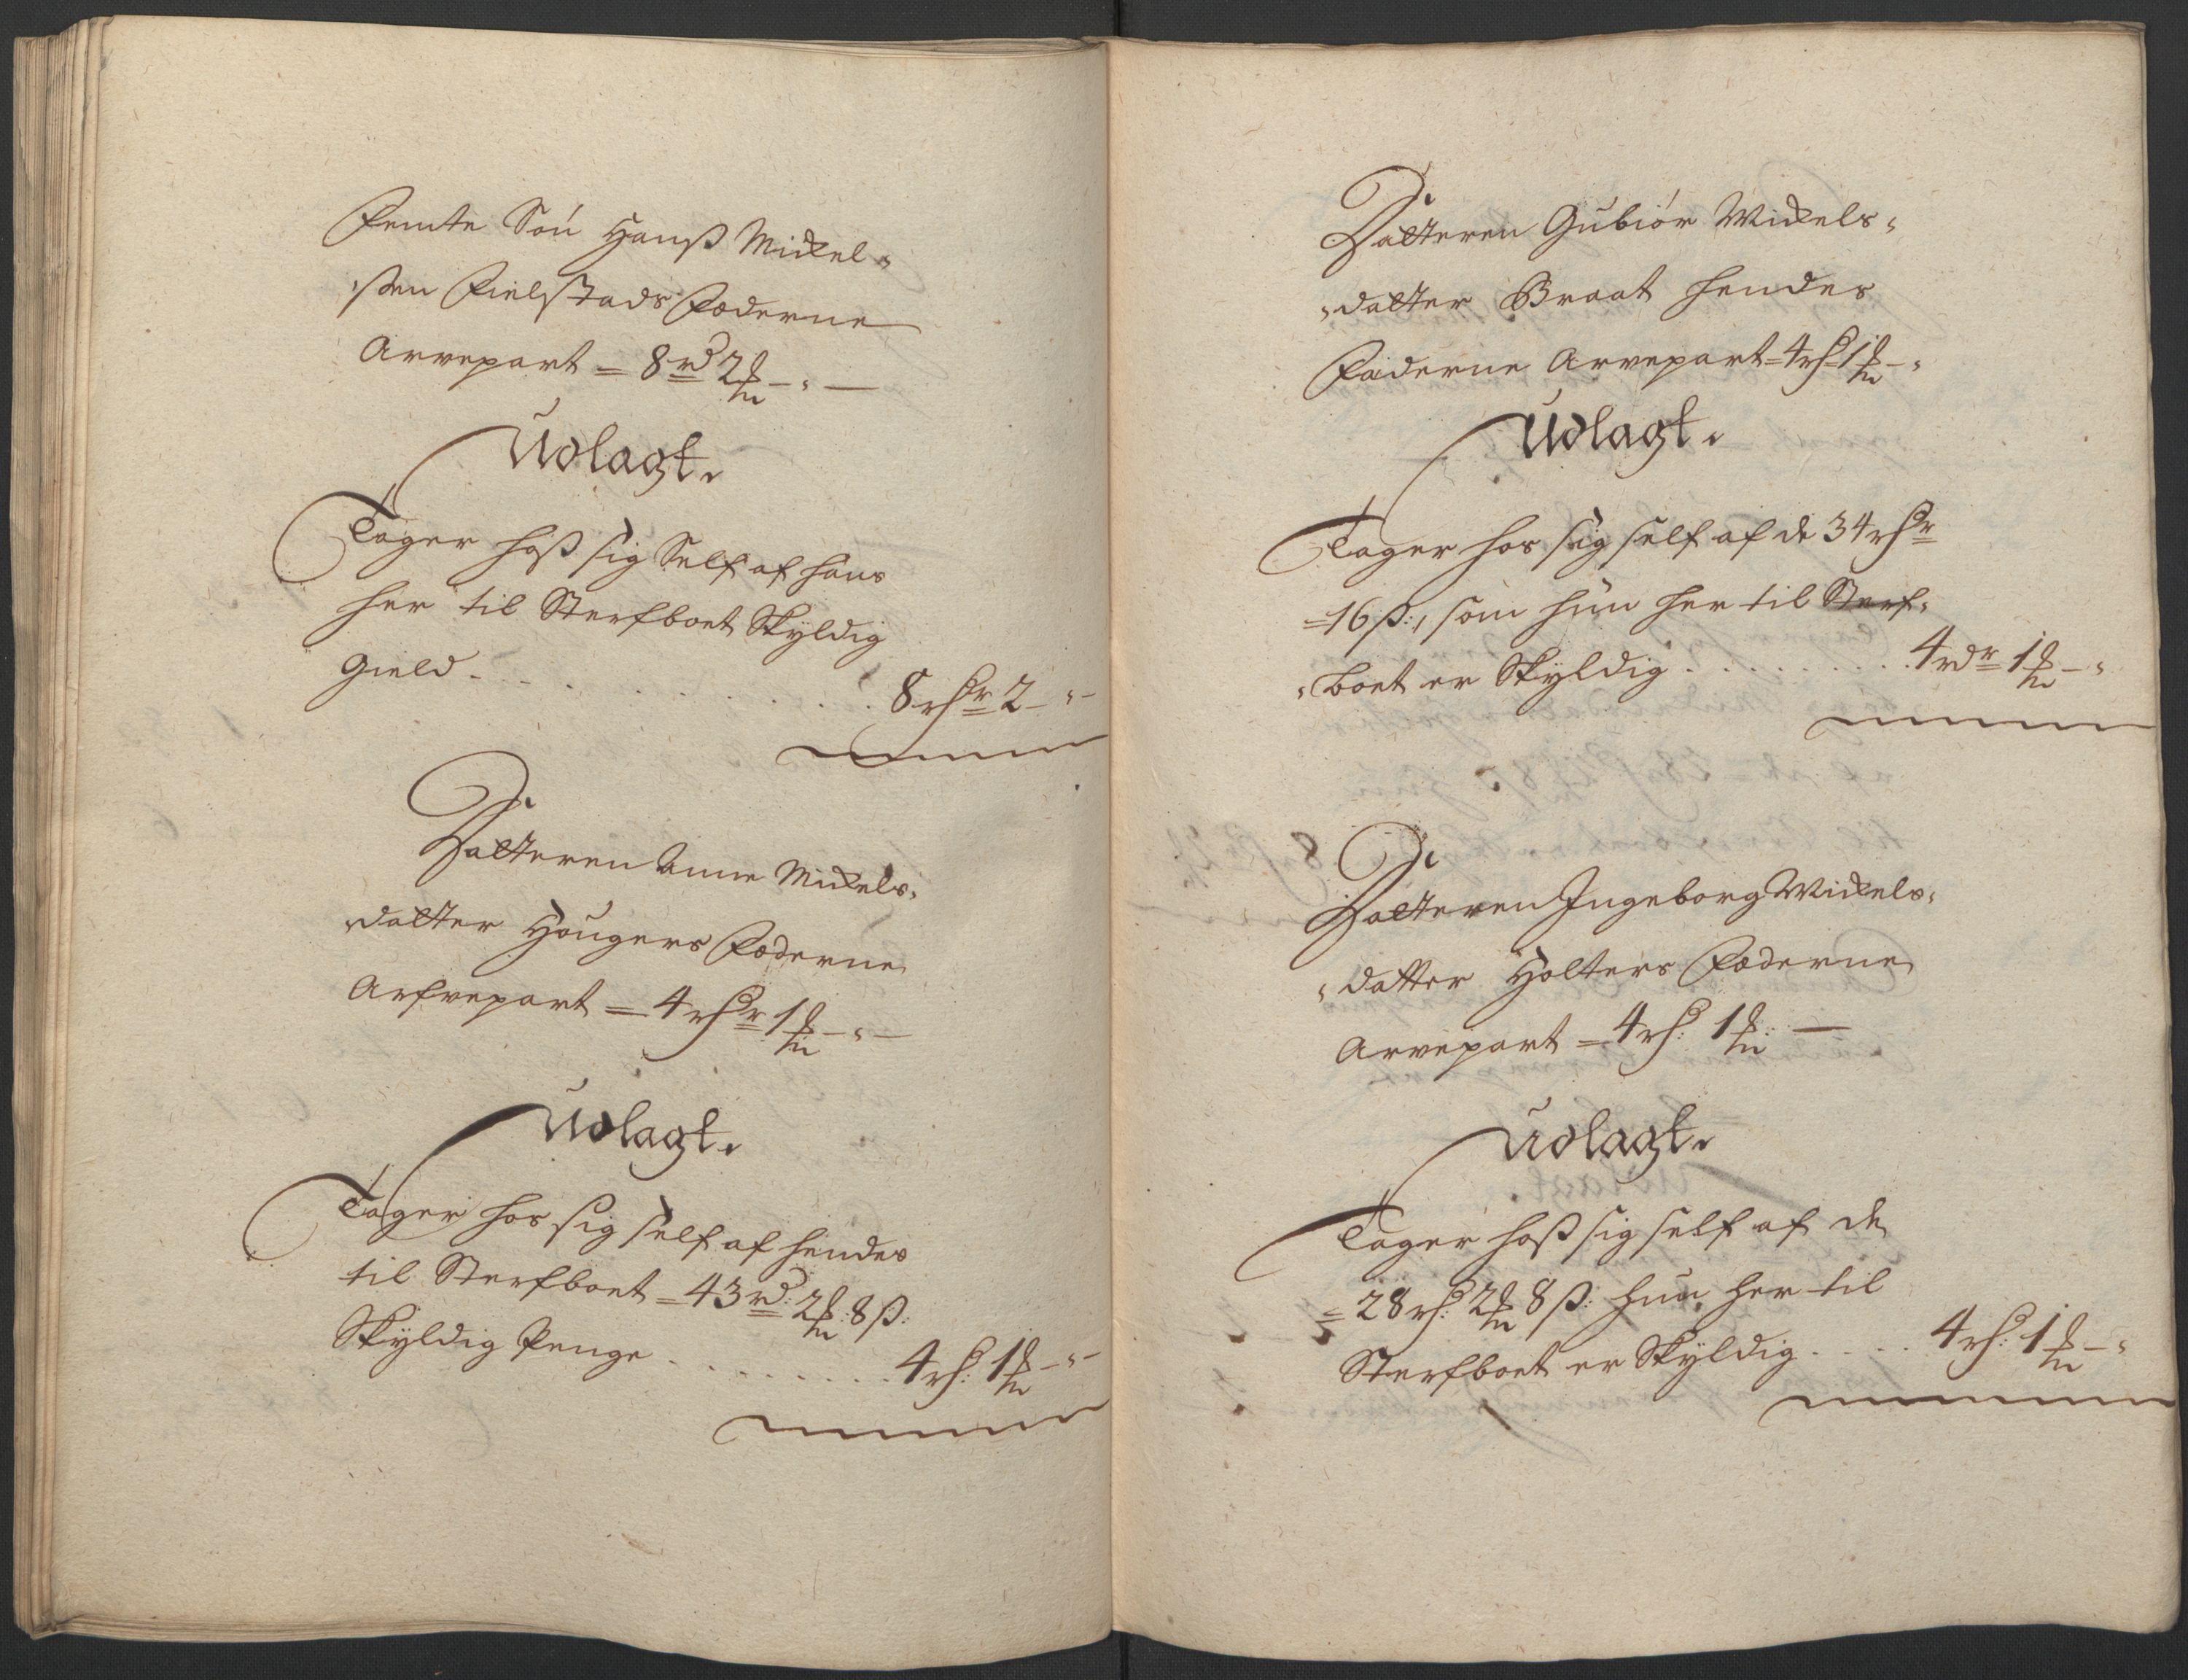 Femte Søn Hanß Mickel-
sten Fielstads Fæderne
Arvepart = 8 rd 2 ß - " -
Udlagt.
Tager hoß sig Self af hans
her til Sterfboet Skyldig
Gield . . . . 8 rdr 2 - " -
Datteren Anne Mickels-
datter Hougers Fæderne
Arfvepart = 4 rdr 1 ß - " -
Udlagt.
Tager hos sig self af hendes
til Sterfboet = 43 rd: 2 8 ß:
Skyldig Penge . . . . 4 rd: 1 - " -
Datteren Gubiør Mickels-
datter Braat hendes
Fæderne Arvepart = 4 rd 1 - "
Udlagt.
Tager hos sig self af de 34 rdr
=16 ß:, som hun her til Sterf-
boet er Skyldig . . . . 4 rdr 1 - "
Datteren Ingeborg Mickels-
datter Holters Fæderne
Arvepart = 4 rd: 1 : -
Udlagt.
Tager hoß sig self af de
= 28 rd: 2 8 ß: hun her til
Sterfboet er Skyldig . . . . 4 rd: 1 - "